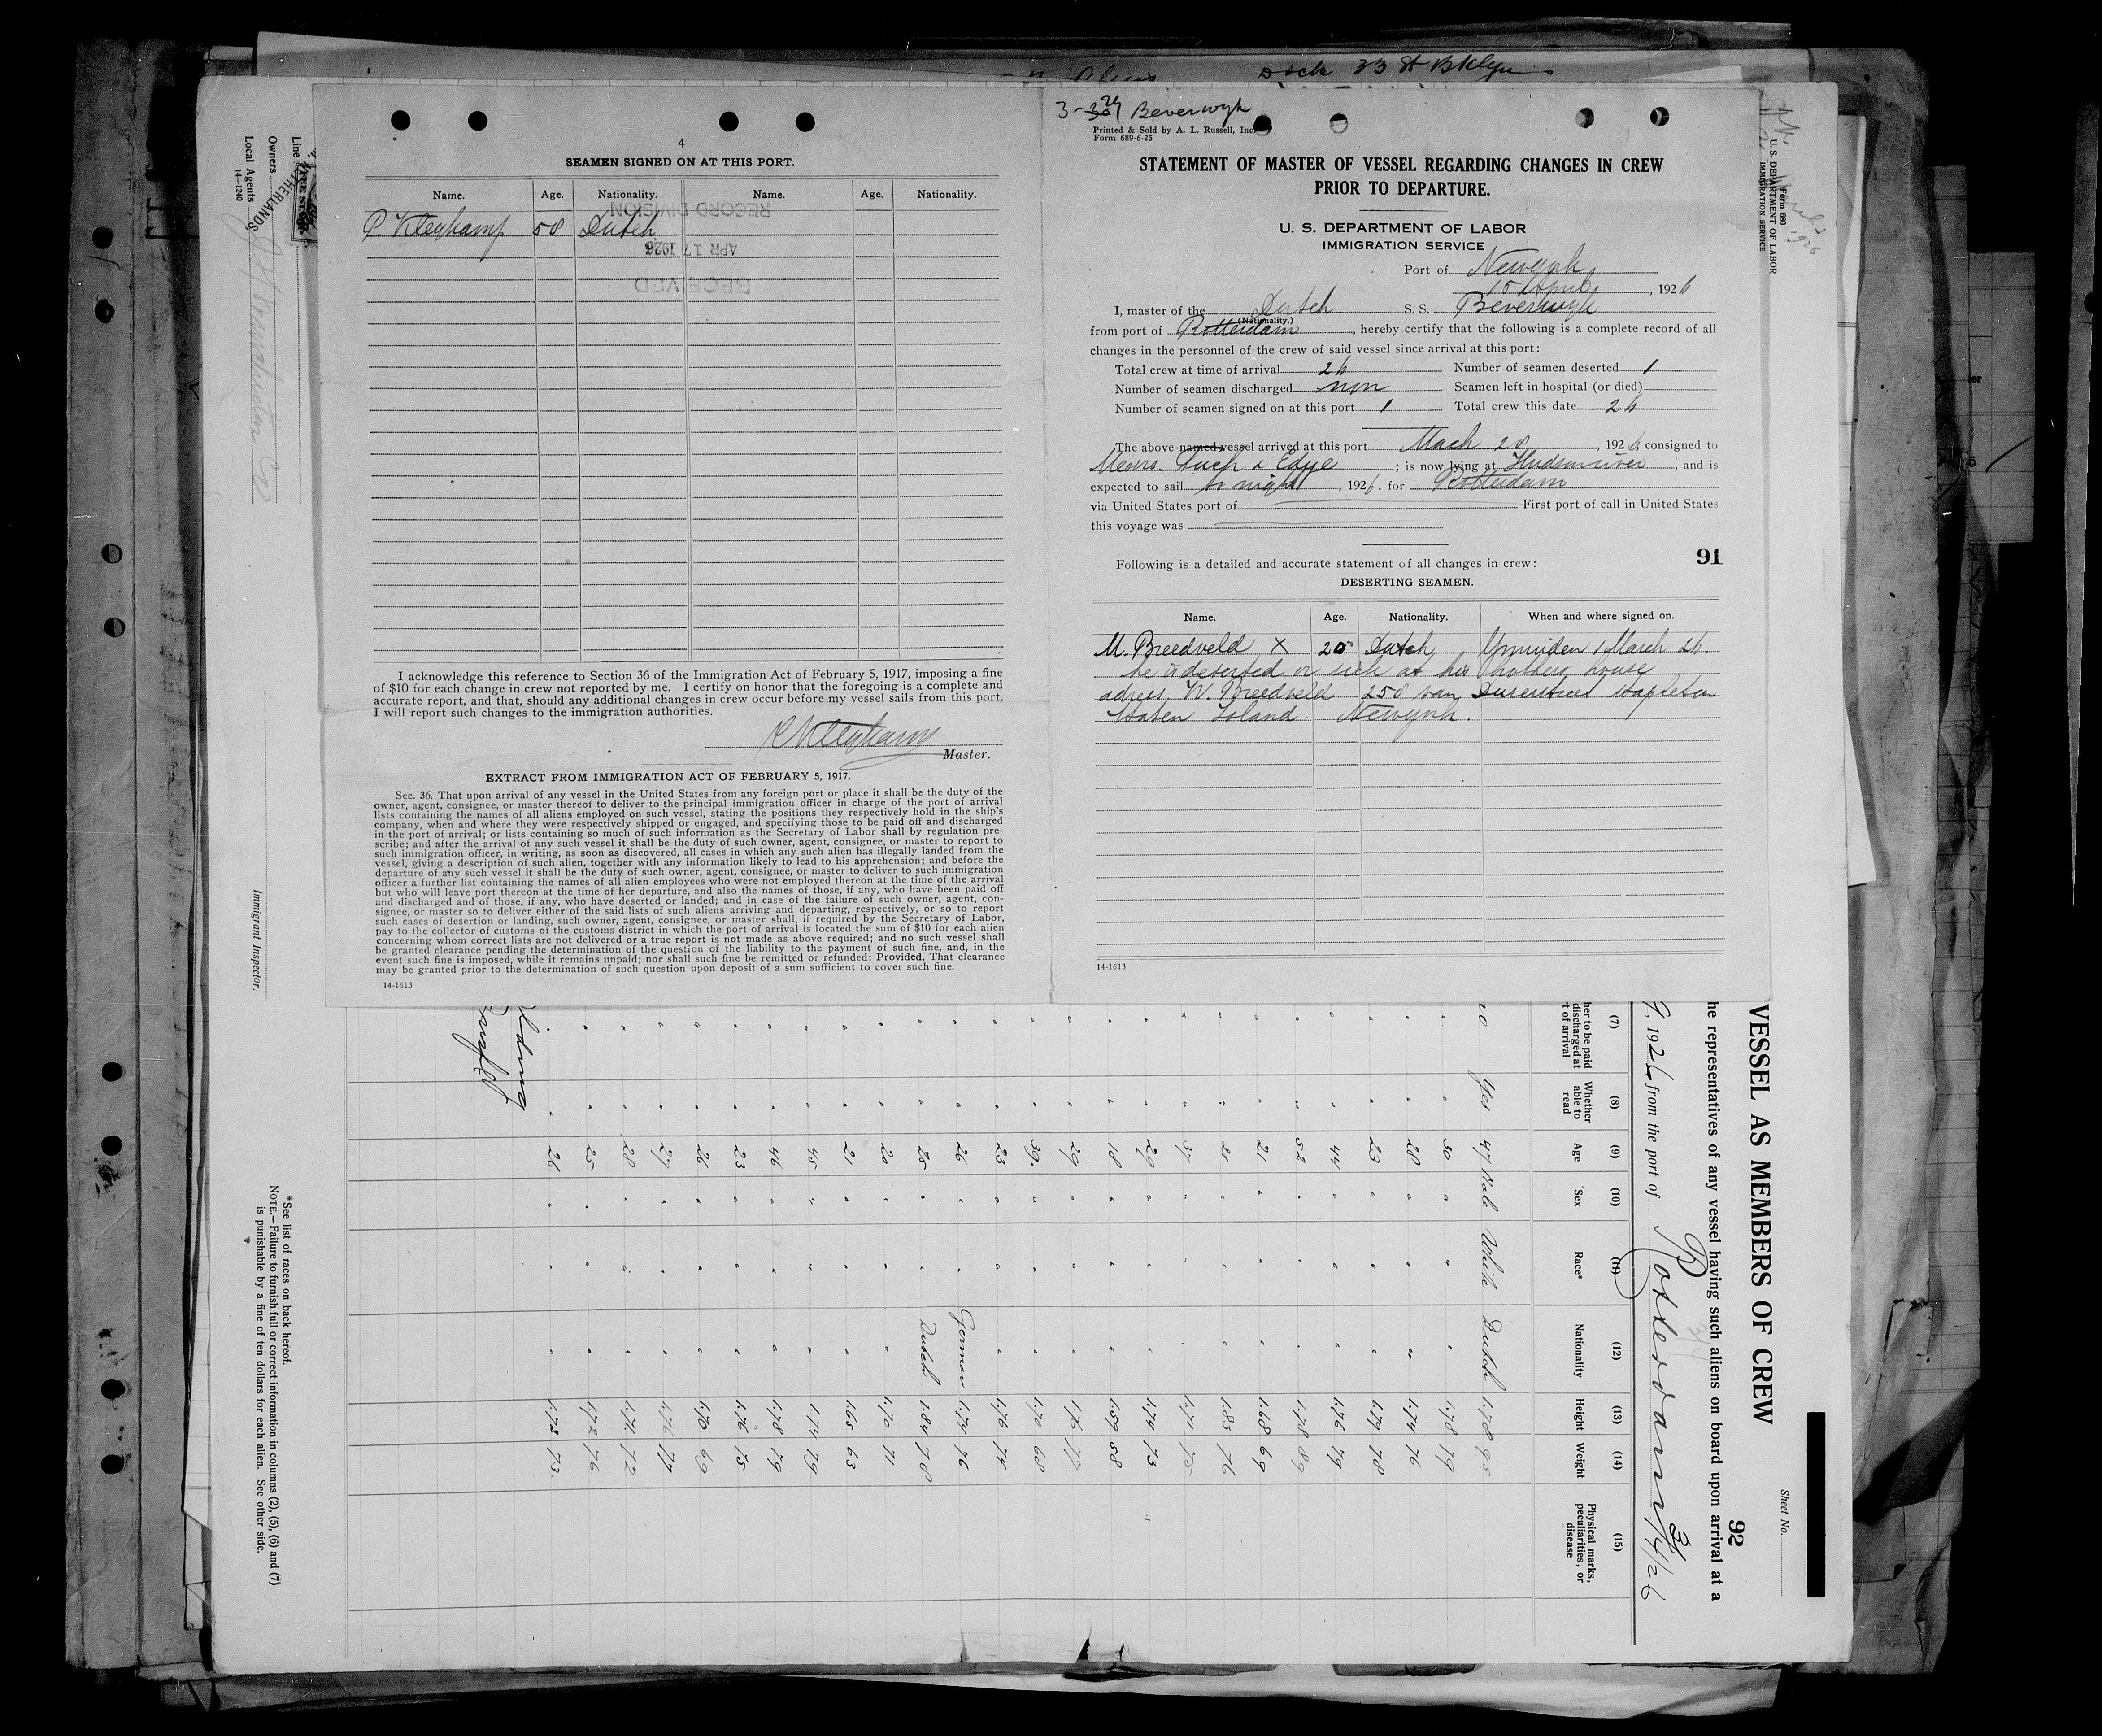 Dock 33 St Bklyn
4
SEAMEN SIGNED ON AT THIS PORT.
Name. Age. Nationality. Name. Age. Nationality.
P. Kleykamp 58 Dutch
RECORD DIVISION
APR 17 1926
RECEIVED
I acknowledge this reference to Section 36 of the Immigration Act of February 5, 1917, imposing a fine
of $10 for each change in crew not reported by me. I certify on honor that the foregoing is a complete and
accurate report, and that, should any additional changes in crew occur before my vessel sails from this port,
I will report such changes to the immigration authorities.
Master.
EXTRACT FROM IMMIGRATION ACT OF FEBRUARY 5, 1917.
Sec. 36. That upon arrival of any vessel in the United States from any foreign port or place it shall be the duty of the
owner, agent, consignee, or master thereof to deliver to the principal immigration officer in charge of the port of arrival
lists containing the names of all aliens employed on such vessel, stating the positions they respectively hold in the ship's
company, when and where they were respectively shipped or engaged, and specifying those to be paid off and discharged
in the port of arrival; or lists containing so much of such information as the Secretary of Labor shall by regulation pre-
scribe; and after the arrival of any such vessel it shall be the duty of such owner, agent, consignee, or master to report to
such immigration officer, in writing, as soon as discovered, all cases in which any such alien has illegally landed from the
vessel, giving a description of such alien, together with any information likely to lead to his apprehension; and before the
departure of any such vessel it shall be the duty of such owner, agent, consignee, or master to deliver to such immigration
officer a further list containing the names of all alien employees who were not employed thereon at the time of the arrival
but who will leave port thereon at the time of her departure, and also the names of those, if any, who have been paid off
and discharged and of those, if any, who have deserted or landed; and in case of the failure of such owner, agent, con-
signee, or master so to deliver either of the said lists of such aliens arriving and departing, respectively, or so to report
such cases of desertion or landing, such owner, agent, consignee, or master shall, if required by the Secretary of Labor,
pay to the collector of customs of the customs district in which the port of arrival is located the sum of $10 for each alien
concerning whom correct lists are not delivered or a true report is not made as above required; and no such vessel shall
be granted clearance pending the determination of the question of the liability to the payment of such fine, and, in the
event such fine is imposed, while it remains unpaid; nor shall such fine be remitted or refunded: Provided, That clearance
may be granted prior to the determination of such question upon deposit of a sum sufficient to cover such fine.
14-1613
Beverwyk
Printed & Sold by A. L. Russell, Inc.
Form 689-6-25
STATEMENT OF MASTER OF VESSEL REGARDING CHANGES IN CREW
PRIOR TO DEPARTURE.
U. S. DEPARTMENT OF LABOR
IMMIGRATION SERVICE
Port of Newyork
15 April, 1926
I, master of the Dutch S. S. Beverwyk
(Nationality.)
from port of Rotterdam, hereby certify that the following is a complete record of all
changes in the personnel of the crew of said vessel since arrival at this port:
Total crew at time of arrival 26 Number of seamen deserted 1
Number of seamen discharged non Seamen left in hospital (or died)
Number of seamen signed on at this port 1 Total crew this date 26
The above-named vessel arrived at this port Mach 28, 1926 consigned to
Messrs. Funch & Edye; is now lying at Hudsonriver, and is
expected to sail to night, 1926. for Rotterdam
via United States port of First port of call in United States
this voyage was
91
Following is a detailed and accurate statement of all changes in crew:
DESERTING SEAMEN.
Name. Age. Nationality. When and where signed on.
M. Breedveld X 25 Dutch Ymuiden 1 March 26
he is deserted or sick at his brothers house
adress W. Breedveld 250 van Duzerstreet Stapleton
Staten Island. Newyork.
14-1613
Form 680
U. S. DEPARTMENT OF LABOR
IMMIGRATION SERVICE
Sheet No.
92
VESSEL AS MEMBERS OF CREW
he representatives of any vessel having such aliens on board upon arrival at a
9, 1926, from the port of Rotterdam 3/4/26
(7) (8) (9) (10) (11) (12) (13) (14) (15)
her to be paid discharged at rt of arrival
Whether able to read
Age
Sex
Race*
Nationality
Height
Weight
Physical marks, peculiarities, or disease
no Yes 47 Male White Dutch 1.78 95
" " 30 " " " 1.78 79
" " 28 " " " 1.74 76
" " 23 " " " 1.79 78
" " 44 " " " 1.76 79
" " 52 " " " 1.78 89
" " 21 " " " 1.68 69
" " 21 " " " 1.85 76
" " 37 " " " 1.71 75
" " 29 " " " 1.74 73
" " 18 " " " 1.59 58
" " 29 " " " 1.76 77
" " 39 " " " 1.70 68
" " 23 " " " 1.76 74
" " 26 " " German 1.74 76
" " 25 " " Dutch 1.84 78
" " 20 " " " 1.70 71
" " 21 " " " 1.65 63
" " 45 " " " 1.74 79
" " 46 " " " 1.78 79
" " 23 " " " 1.76 75
" " 26 " " " 1.70 69
" " 27 " " " 1.76 77
" " 28 " " " 1.71 72
" " 25 " " " 1.72 76
" " 26 " " " 1.73 73
Line
Owners
Local Agents
14-1240
Immigrant Inspector.
*See list of races on back hereof.
NOTE.—Failure to furnish full or correct information in columns (2), (5), (6) and (7)
is punishable by a fine of ten dollars for each alien. See other side.